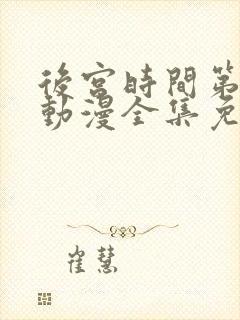 後宮時間第
動漫全集免
崔慧